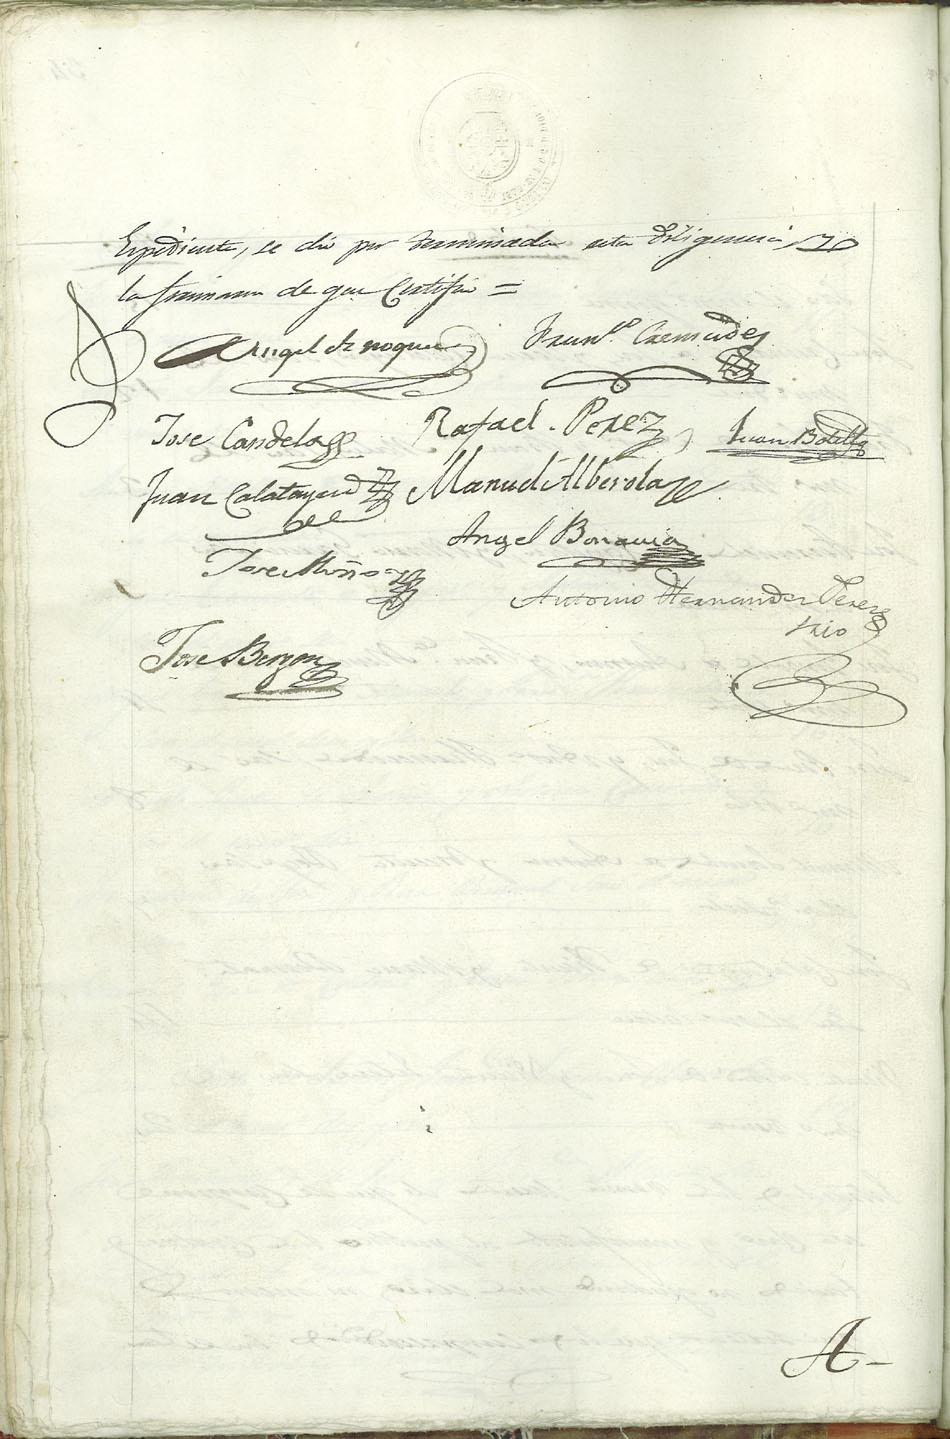 Expediente, se dió por terminada esta diligencia y
la firmaron de que Certifico =
Angel Fran.co
Jose Candela Rafael Perez Juan Botella
Juan Calatayud Manuel Alberola
Angel Bonavia
Jose Muñoz
Antonio Hernandez Perez
Srio
Jose
A